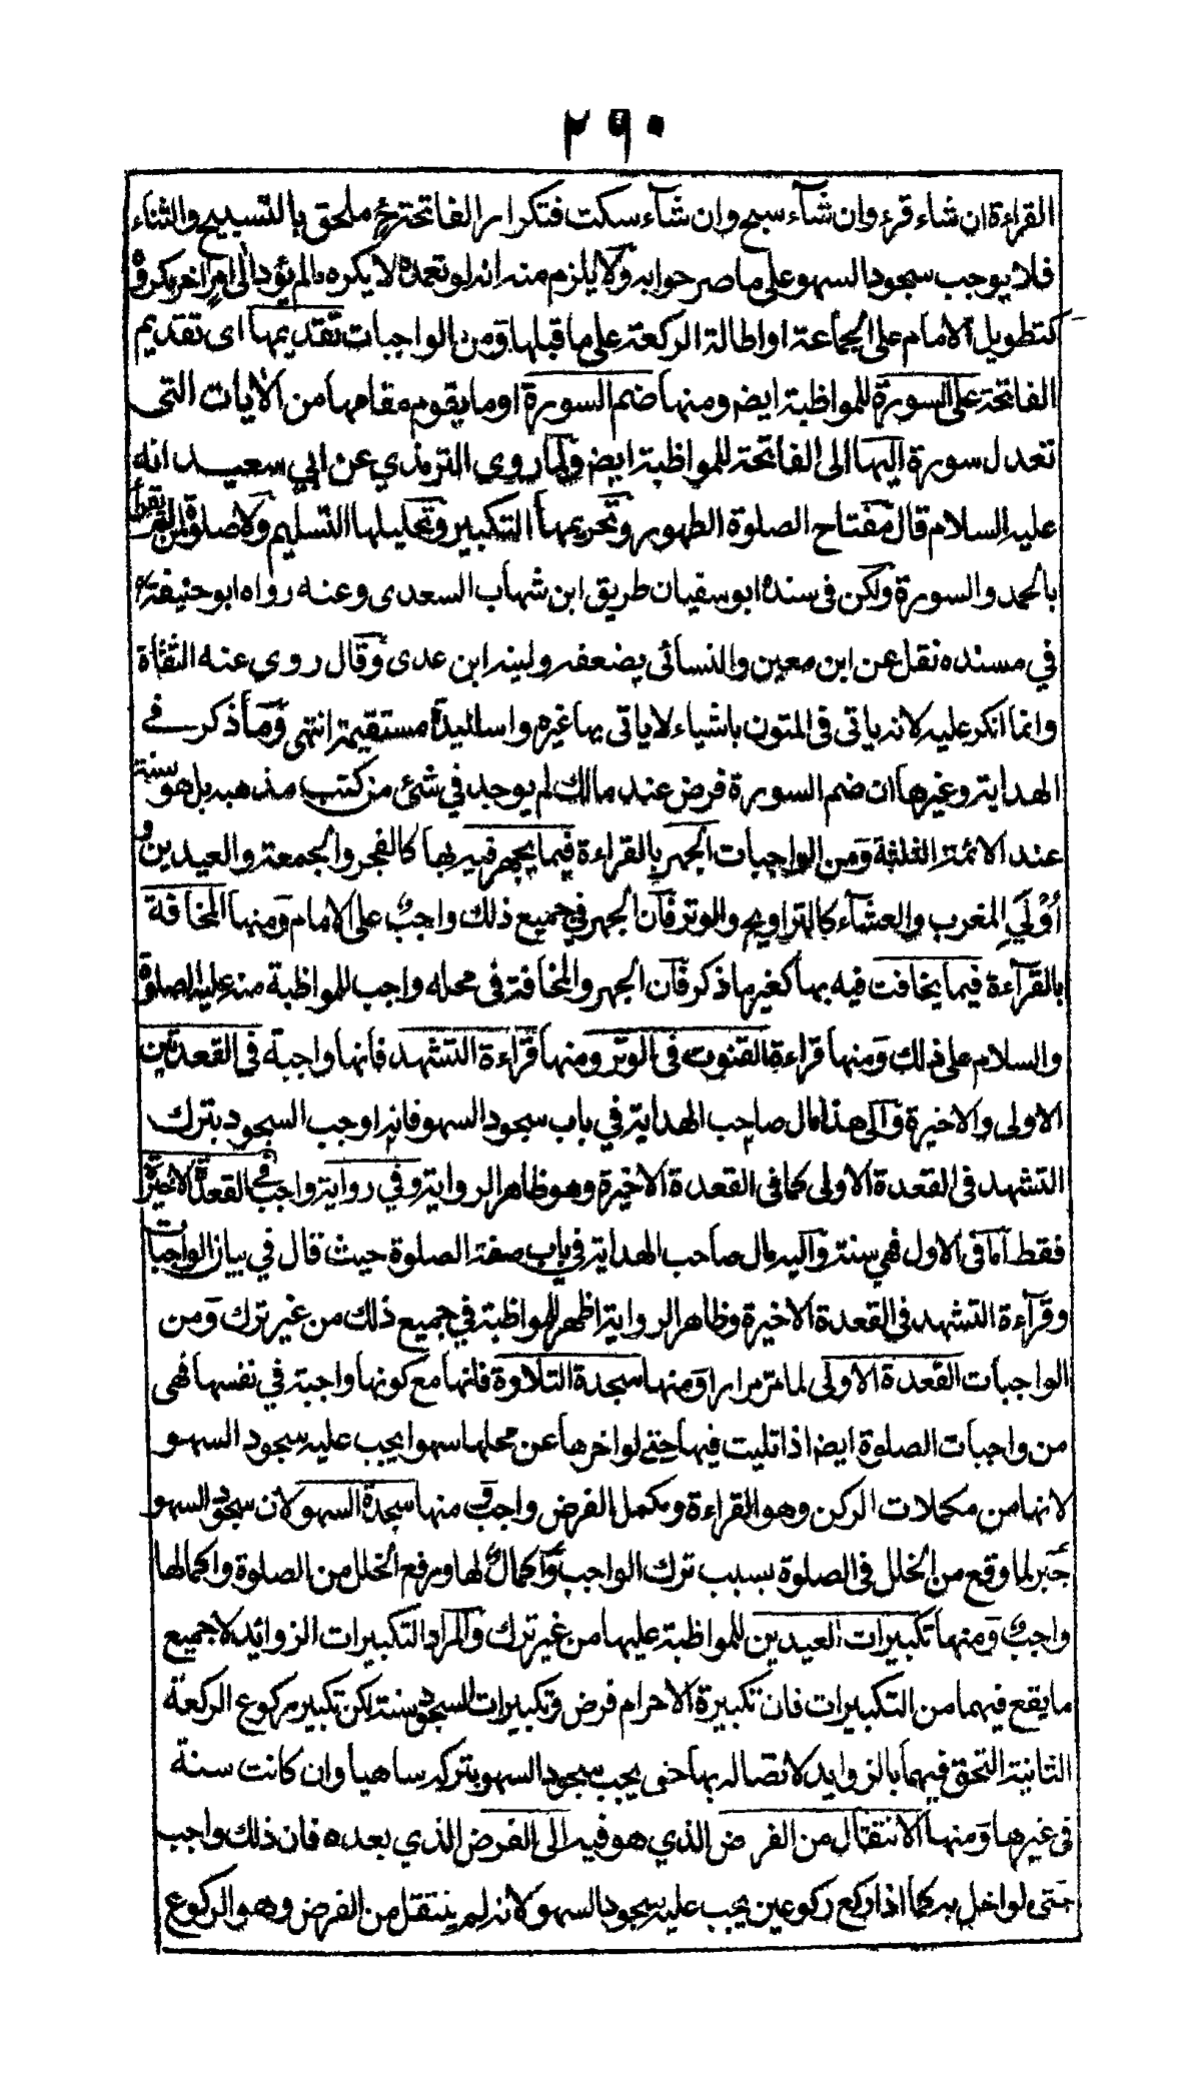 ٢٩٠
القراءة ان شاء قرء وان شآء سبح وان شآء سكت فتكرار الفاتحة ح ملحق بالتسبيح والثناء
فلا يوجب سجود السهو على ما صرحوا به ولا يلزم منه انه لو تعمده لا يكره مالم يؤد الى امر اخر مكروه
كتطويل الامام على الجماعة او اطالة الركعة على ما قبلها ومن الواجبات تقديمها اى تقديم
الفاتحة على السورة للمواظبة ايض ومنها ضم السورة او ما يقوم مقامها من الآيات التى
تعدل سورة اليها الى الفاتحة للمواظبة ايض ولما روى الترمذي عن ابي سعيد انه
عليه السلام قال مفتاح الصلوة الطهور وتحريمها التكبير وتحليلها التسليم ولا صلوة لمن لم يقرأ
بالحمد والسورة ولكن فى سنده ابو سفيان طريق ابن شهاب السعدى وعنه رواه ابو حنيفة
في مسنده نقل عن ابن معين والنسائى يضعفه ولينه ابن عدى وقال روى عنه الثقاة
وانما انكر عليه لانه ياتى فى المتون باشياء لا ياتى بها غيره واسانيده مستقيمة انتهى وما ذكر في
الهداية وغيرها ان ضم السورة فرض عند مالك لم يوجد في شئ من كتب مذهبه بل هو سنة
عند الائمة الثلثة ومن الواجبات الجهر بالقراءة فيما يجهر فيه بها كالفجر والجمعة والعيدين و
أوْلَيَيِ المغرب والعشآء كالتراويح والوتر فان الجهر في جميع ذلك واجب على الامام ومنها المخافة
بالقرآءة فيما يخافت فيه بها كغير ما ذكر فان الجهر والمخافة فى محله واجب للمواظبة منه عليه الصلوة
والسلام على ذلك ومنها قراءة القنوت فى الوتر ومنها قراءة التشهد فانها واجبة فى القعدتين
الاولى والاخيرة والى هذا مال صاحب الهداية في باب سجود السهو فانه اوجب السجود بترك
التشهد فى القعدة الاولى كما فى القعدة الاخيرة وهو ظاهر الرواية وفي رواية واجب في القعدة الاخيرة
فقط اما فى الاول فهي سنة واليه مال صاحب الهداية في باب صفة الصلوة حيث قال في بيان الواجبات
وقرآءة التشهد فى القعدة الاخيرة وظاهر الرواية اظهر للمواظبة في جميع ذلك من غير ترك ومن
الواجبات القعدة الاولى لما مر مرارا ومنها سجدة التلاوة فانها مع كونها واجبة في نفسها فهى
من واجبات الصلوة ايض اذا تليت فيها حتى لو اخرها عن محلها سهوا يجب عليه سجود السهو
لانها من مكملات الركن وهو القراءة ومكمل الفرض واجب و منها سجدة السهو لان سجود السهو
جَبر لما وقع من الخلل فى الصلوة بسبب ترك الواجب وَاكمال لها ورفع الخلل من الصلوة واكمالها
واجب ومنها تكبيرات العيدين للمواظبة عليها من غير ترك والمراد التكبيرات الزوائد لا جميع
ما يقع فيهما من التكبيرات فان تكبيرة الاحرام فرض وتكبيرات السجود سنة لكن تكبير ركوع الركعة
الثانية التحق فيهما بالزوايد لاتصاله بها حتى يجب سجود السهو بتركه ساهيا وان كانت سنة
فى غيرها ومنها الانتقال من الفرض الذي هو فيه الى الفرض الذي بعده فان ذلك واجب
حتى لو اخل به كما اذا ركع ركوعين يجب عليه سجود السهو لانه لم ينتقل من الفرض وهو الركوع